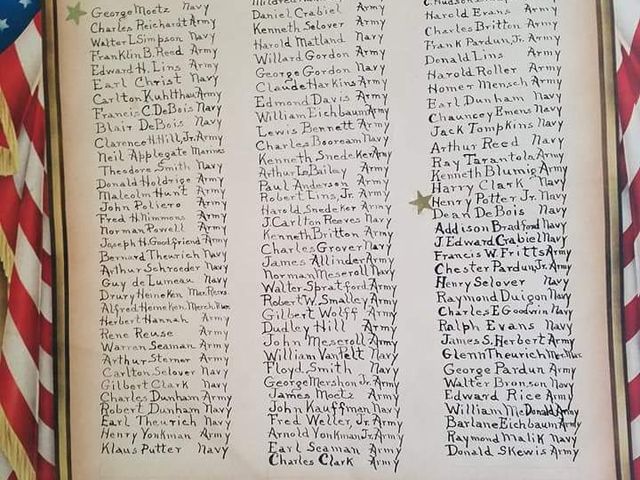 George Moetz Navy
Charles Reichardt Army
Walter L Simpson Navy
Franklin B. Reed Army
Edward H. Lins Army
Earl Christ Navy
Carlton Kuhlthau Army
Francis C. DeBois Navy
Blair DeBois Navy
Clarence H. Hill, Jr. Army
Neil Applegate Marines
Theodore Smith Navy
Donald Holdrige Army
Malcolm Hunt Army
John Poliero Army
Fred H. Nimmons Army
Norman Powell Army
Joseph H. Goodfriend Army
Bernard Theurich Navy
Arthur Schroeder Navy
Guy de Lumeau Navy
Drury Heineken
Alfred Heineken
Herbert Hannah Army
Rene Reuse Army
Warren Seaman Army
Arthur Sterner Army
Carlton Selover Navy
Gilbert Clark Navy
Charles Dunham Army
Robert Dunham Navy
Earl Theurich Navy
Henry Yonkman Army
Klaus Putter Navy
Daniel Crabiel Army
Kenneth Selover Army
Harold Matland Navy
Willard Gordon Army
George Gordon Navy
Claude Harkins Army
Edmond Davis Army
William Eichbaum Army
Lewis Bennett Army
Charles Booream Navy
Kenneth Snedeker Army
Arthur LaBailey Army
Paul Anderson Army
Robert Lins, Jr. Army
Harold Snedeker Army
J. Carlton Reeves Navy
Kenneth Britton Army
Charles Grover Navy
James Allinder Army
Norman Meseroll Navy
Walter Spratford Army
Robert W. Smalley Army
Gilbert Wolff Army
Dudley Hill Army
John Meseroll Army
William VanPelt Navy
Floyd Smith Navy
George Mershon Jr. Army
James Moetz Army
John Kauffmen Navy
Fred Weller, Jr. Army
Arnold Yonkman Jr. Army
Earl Seaman Army
Charles Clark Army
Harold Evans Army
Charles Britton Army
Frank Pardun, Jr. Army
Donald Lins Army
Harold Roller Army
Homer Mensch Army
Earl Dunham Navy
Chauncey Emens Navy
Jack Tompkins Navy
Arthur Reed Navy
Ray Tarantola Army
Kenneth Blumig Army
Harry Clark Navy
Henry Potter Jr. Navy
Dean DeBois Navy
Addison Bradford Navy
J. Edward Crabiel Navy
Francis W. Fritts Army
Chester Pardun, Jr. Army
Henry Selover Navy
Raymond Duigon Navy
Charles E Goodwin Navy
Ralph Evans Navy
James S. Herbert Army
Glenn Theurich Mer. Mar.
George Pardun Army
Walter Bronson Navy
Edward Rice Army
William McDonald Army
Barlane Eichbaum Army
Raymond Malik Navy
Donald Skewis Army